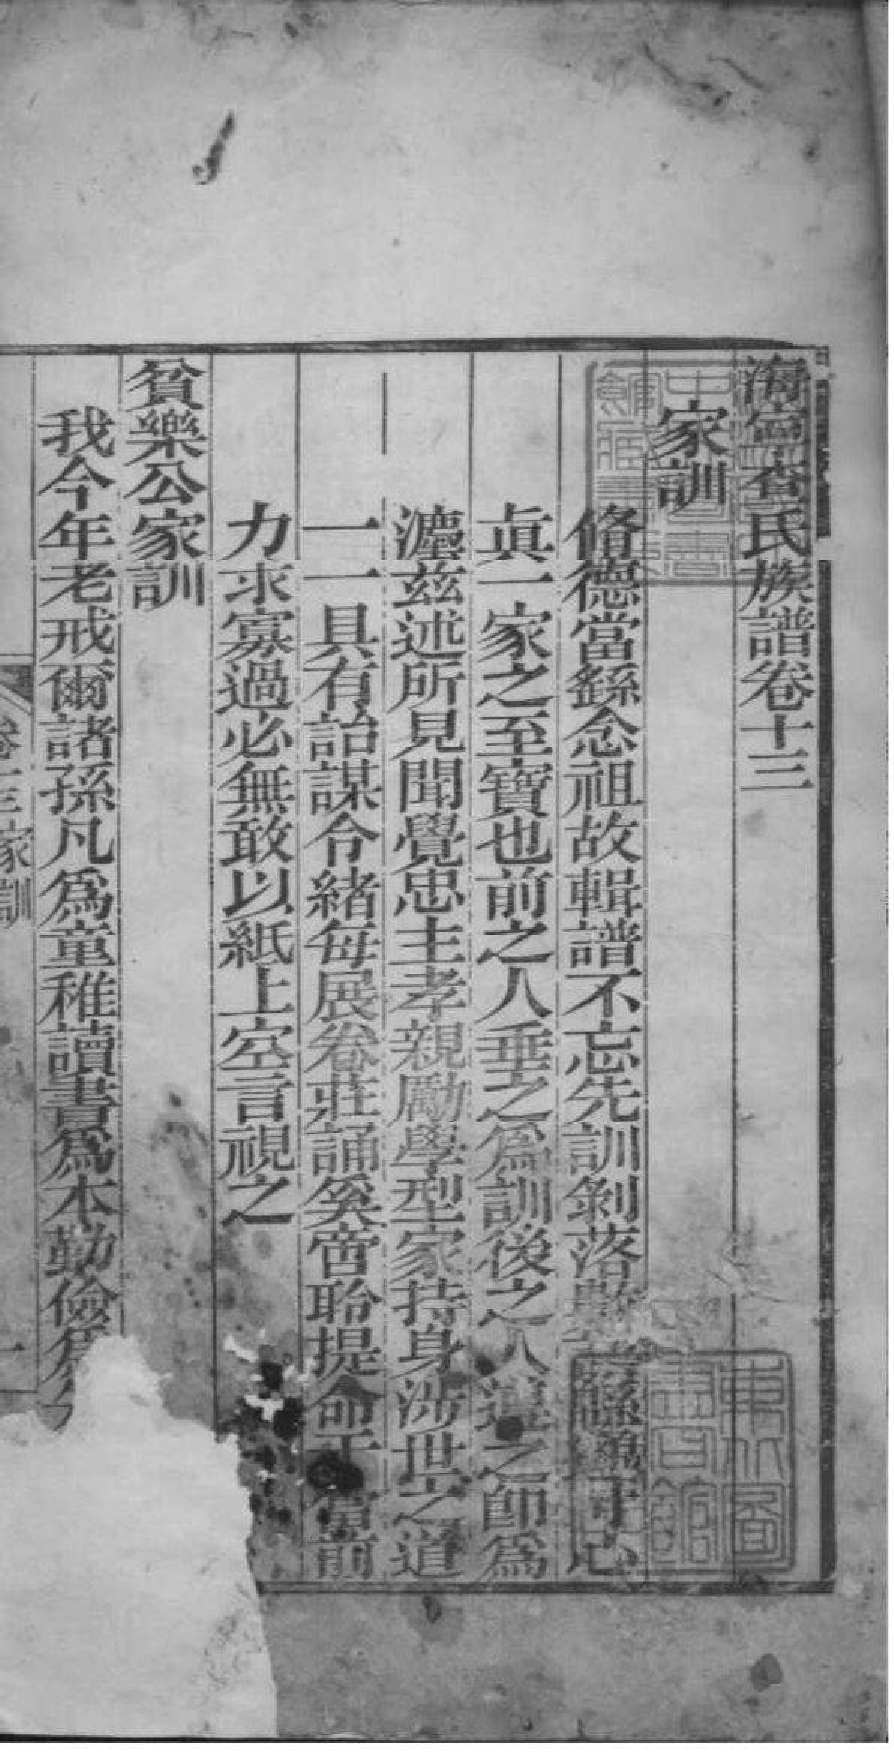 海寧查氏族譜卷十三
家訓
脩德當繇念祖故輯譜不忘先訓剝落心
眞一家之至寶也前之人垂之爲訓後之人遵之卽爲
瀍茲述所見聞覺忠主孝親勵學型家持身涉世之道
一一具有詒謀令緒每展卷莊誦奚啻聆提命于當前
力求寡過必無敢以紙上空言視之
貧樂公家訓
我今年老戒爾諸孫凡爲童稚讀書爲本勤儉爲
卷十三家訓
一
東北圖書館